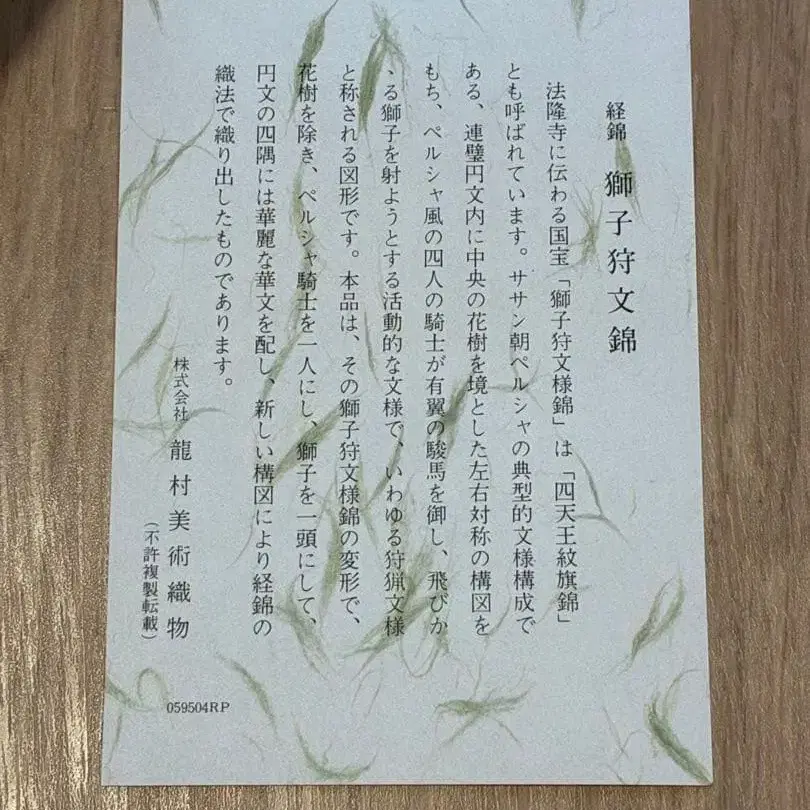 経錦 獅子狩文錦
法隆寺に伝わる国宝「獅子狩文様錦」は「四天王紋旗錦」
とも呼ばれています。ササン朝ペルシャの典型的文様構成で
ある、連璧円文内に中央の花樹を境とした左右対称の構図を
もち、ペルシャ風の四人の騎士が有翼の駿馬を御し、飛びか
ゝる獅子を射ようとする活動的な文様で、いわゆる狩猟文様
と称される図形です。本品は、その獅子狩文様錦の変形で、
花樹を除き、ペルシャ騎士を一人にし、獅子を一頭にして、
円文の四隅には華麗な華文を配し、新しい構図により経錦の
織法で織り出したものであります。
株式会社 龍村美術織物
（不許複製転載）
059504RP